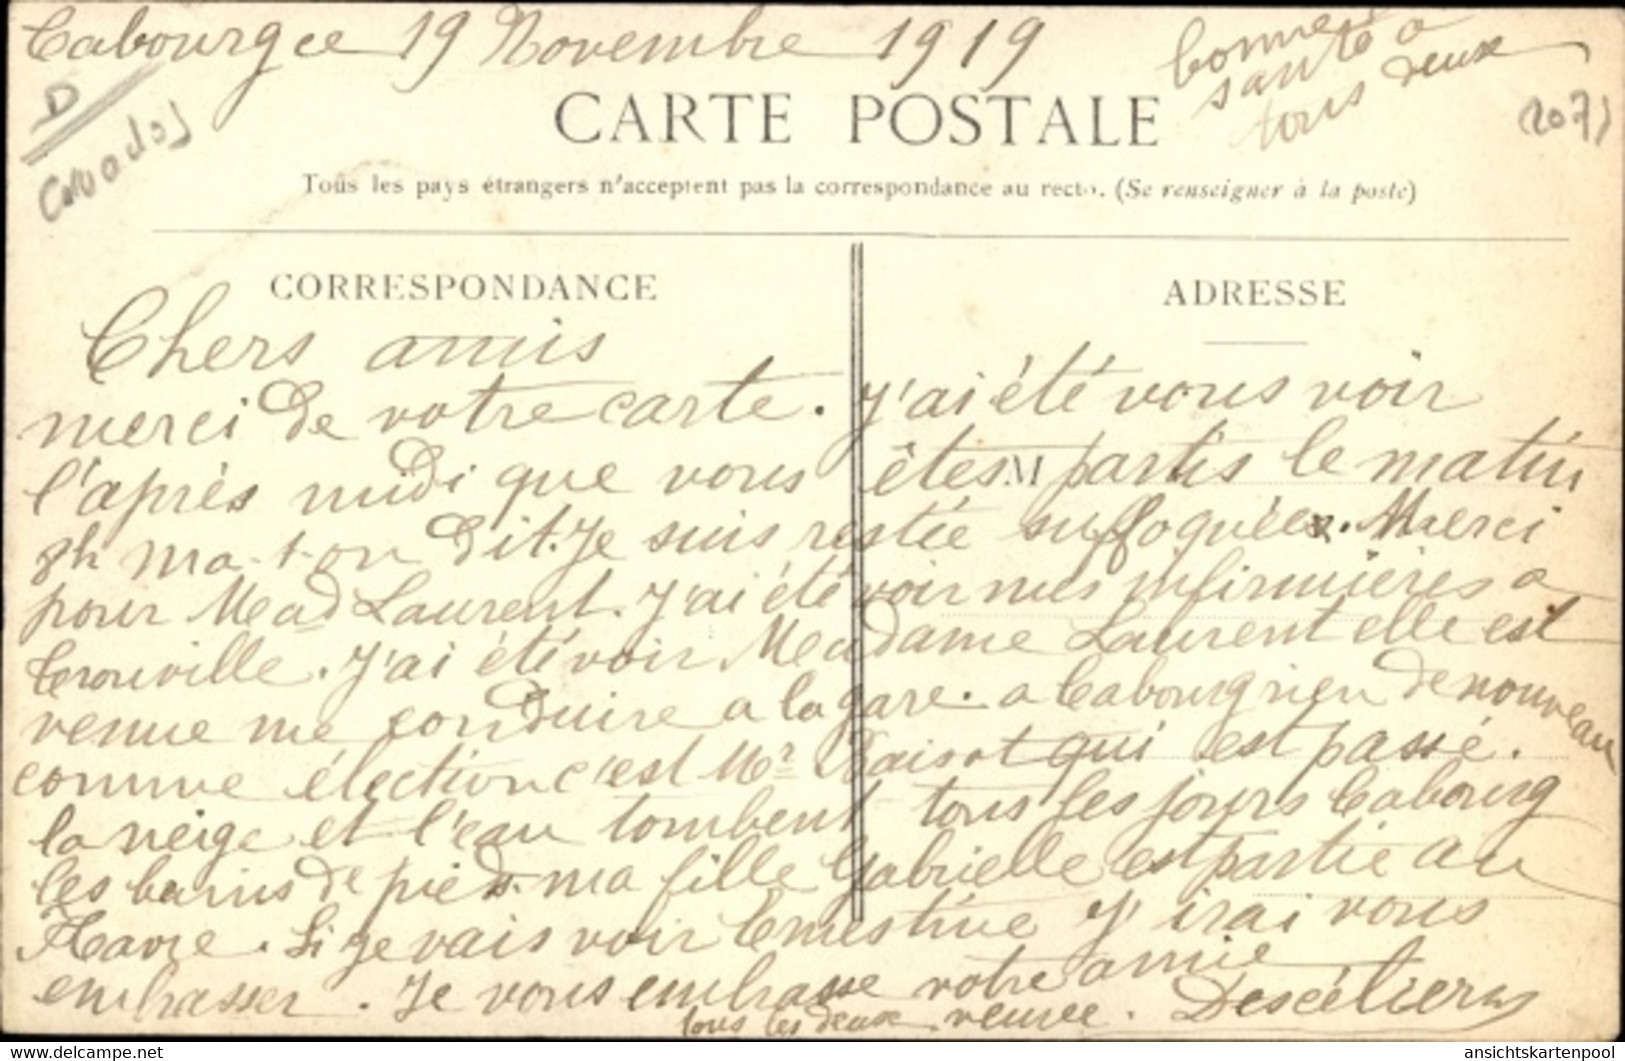 Cabourg ce 19 Novembre 1919
bonne
santé a
tous deux
D
Calvados
2071
CARTE POSTALE
Tous les pays étrangers n'acceptent pas la correspondance au recto. (Se renseigner à la poste)
CORRESPONDANCE
ADRESSE
M
Chers amis
merci de votre carte. J'ai été vous voir
l'après midi que vous êtes partis le matin
8h ma-t-on dit. Je suis restée suffoquée. Merci
pour Mad Laurent. J'ai été voir mes infirmières a
trouville. J'ai été voir Madame Laurent elle est
venue me conduire a la gare. a Cabourg rien de nouveau
comme élection c'est Mr qui est passé.
la neige et l'eau tombent tous les jours Cabourg
les bains de pieds. ma fille Gabrielle est partie au
Havre. Si je vais voir Ernestine J'irai vous
embrasser. Je vous embrasse votre amie
tous les deux veuve. Descéliers
ansichtskartenpool